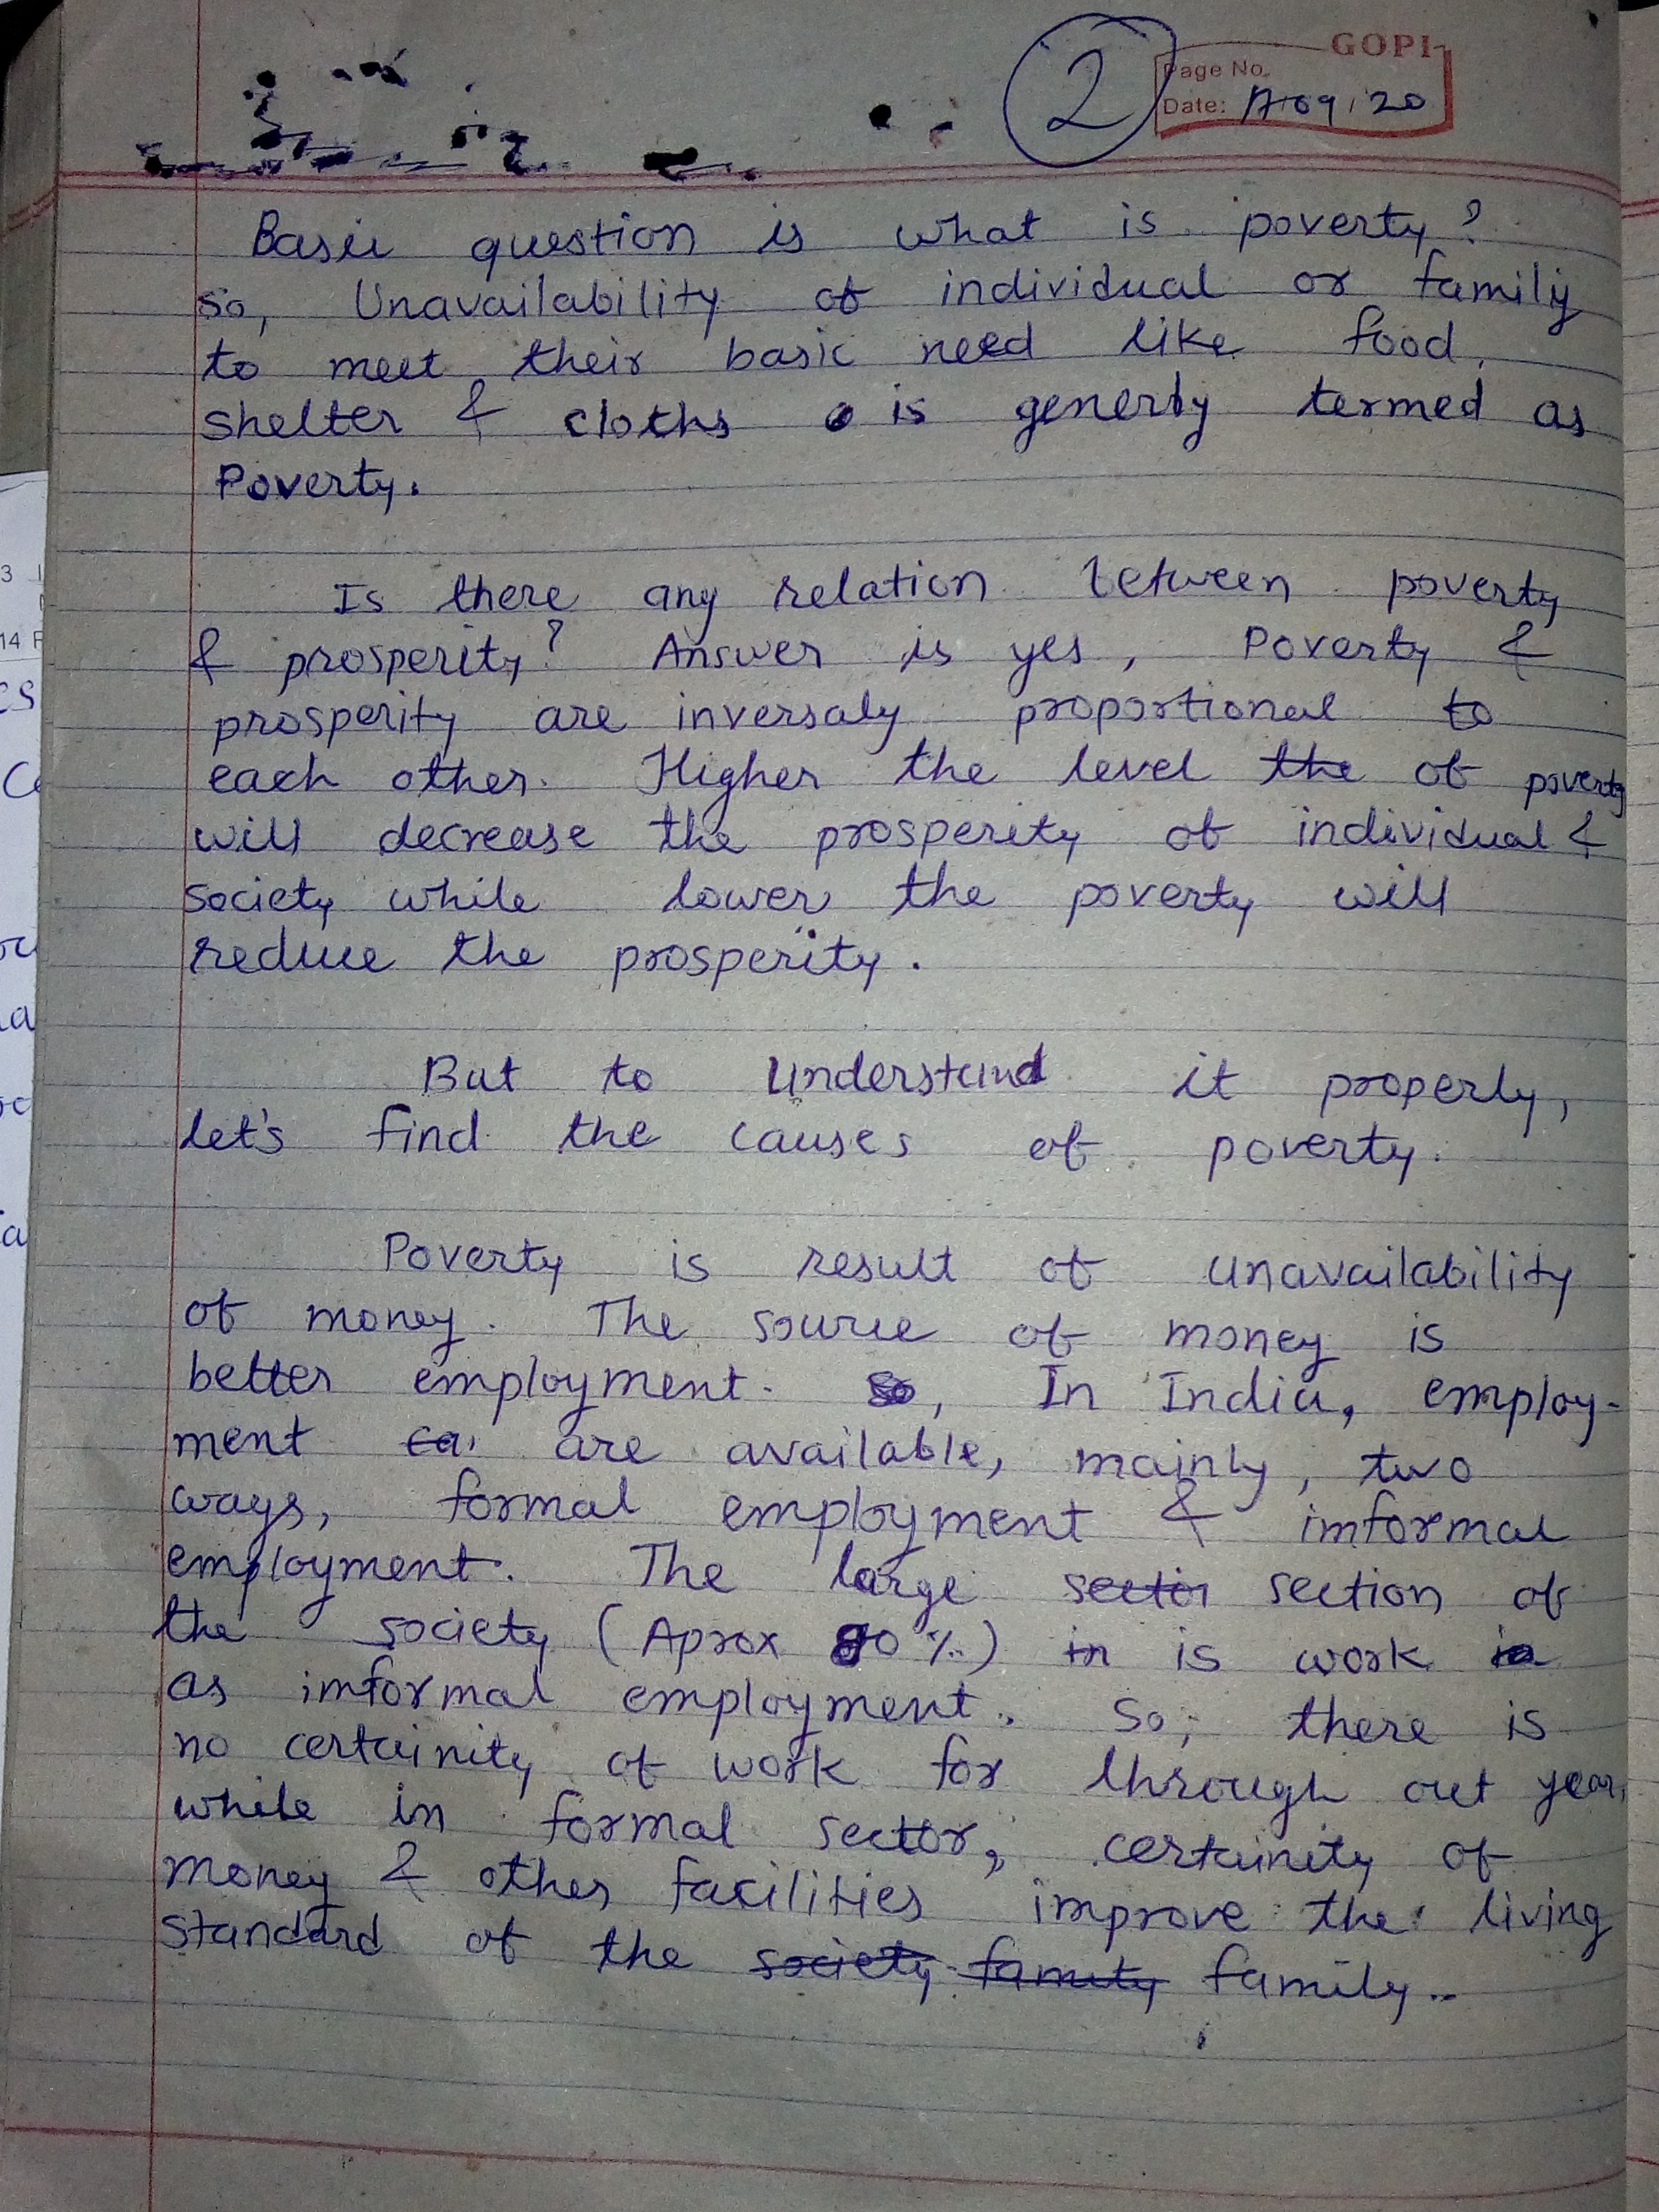 GOPI
2
Page No.
Date: 17/09/20
Basic question is what is poverty?
so, Unavailability of individual or family
to meet their basic need like food,
shelter & cloths is generly termed as
Poverty.
Is there any relation between poverty
& prosperity? Answer is yes, Poverty &
prosperity are inversaly proportional to
each other. Higher the level the of poverty
will decrease the prosperity of individual &
society while lower the poverty will
reduce the prosperity.
But to understand it properly,
let's find the causes of poverty.
Poverty is result of unavailability
of money. The source of money is
better employment. So, In India, employ-
ment ca are available, mainly, two
ways, formal employment & imformal
employment. The large sector section of
the society (Aprox 90%) in is work in
as imformal employment. So, there is
no certainity of work for through out year,
while in formal sector, certainity of
money & other facilities improve the living
standard of the society family family..